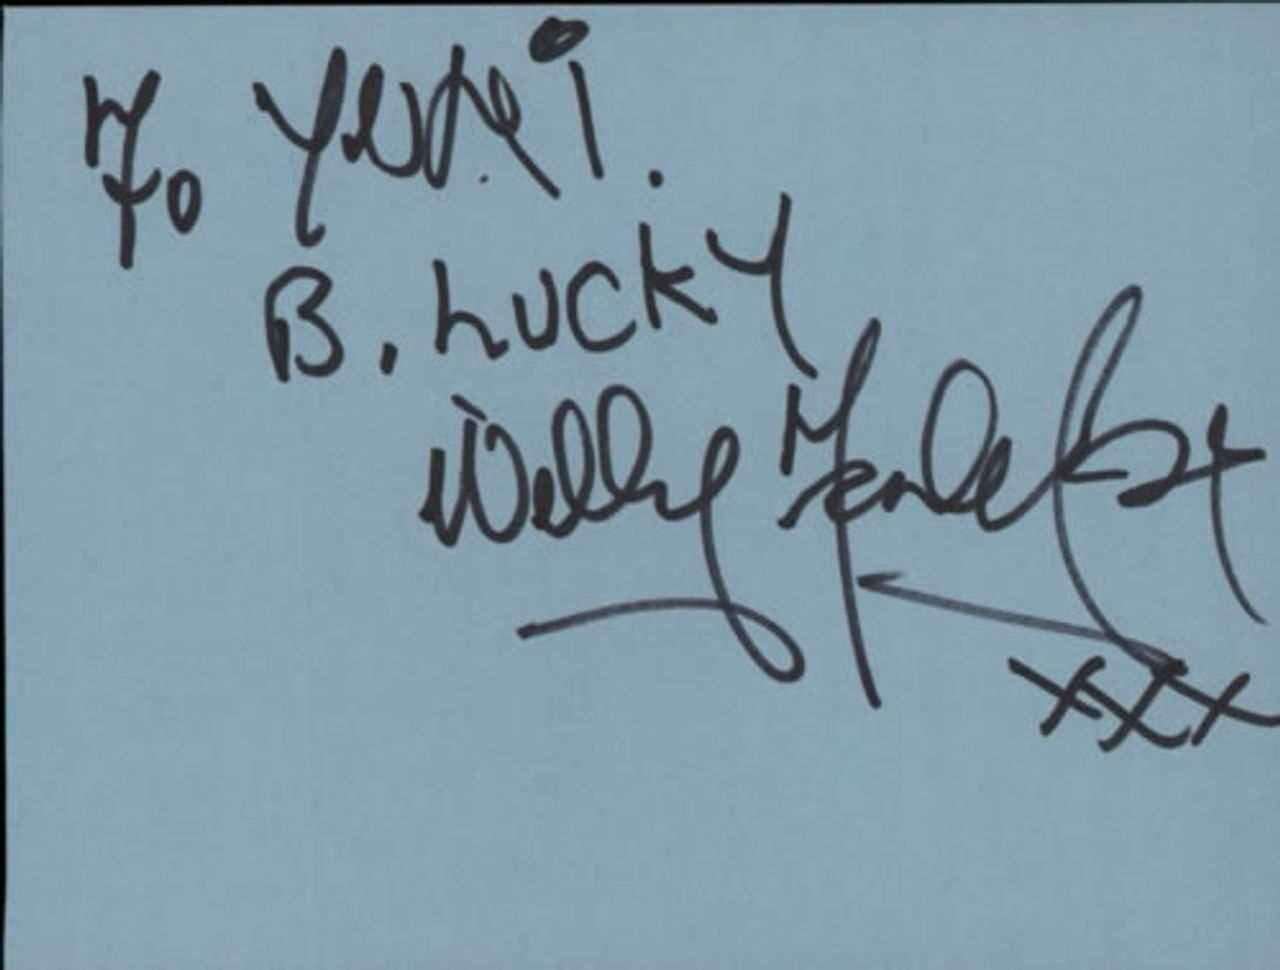 To Yuki.
B. Lucky
Willy
xxx